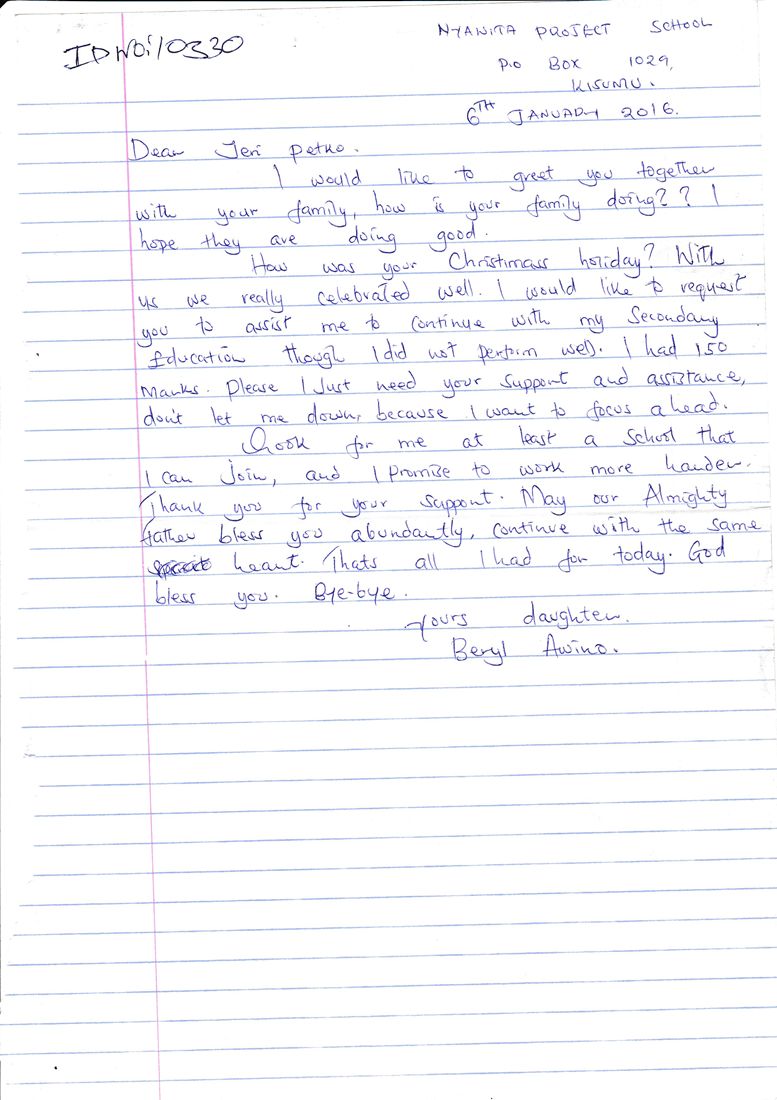 NYANITA PROJECT SCHOOL
IDNO:10330
P.O BOX 1029,
KISUMU.
6TH JANUARY 2016.
Dear Jeri Petko.
I would like to greet you together
with your family, how is your family doing?? I
hope they are doing good.
How was your Christimass holiday? With
us we really celebrated well. I would like to request
you to assist me to continue with my Secondary
Education though I did not perform well. I had 150
Marks. Please I Just need your support and assistance,
don't let me down, because I want to focus ahead.
Look for me at least a School that
I can Join, and I promise to work more harder.
Thank you for your support. May our Almighty
father bless you abundantly, continue with the same
heart. Thats all I had for today. God
bless you. Bye-bye.
Yours daughter.
Beryl Awino.